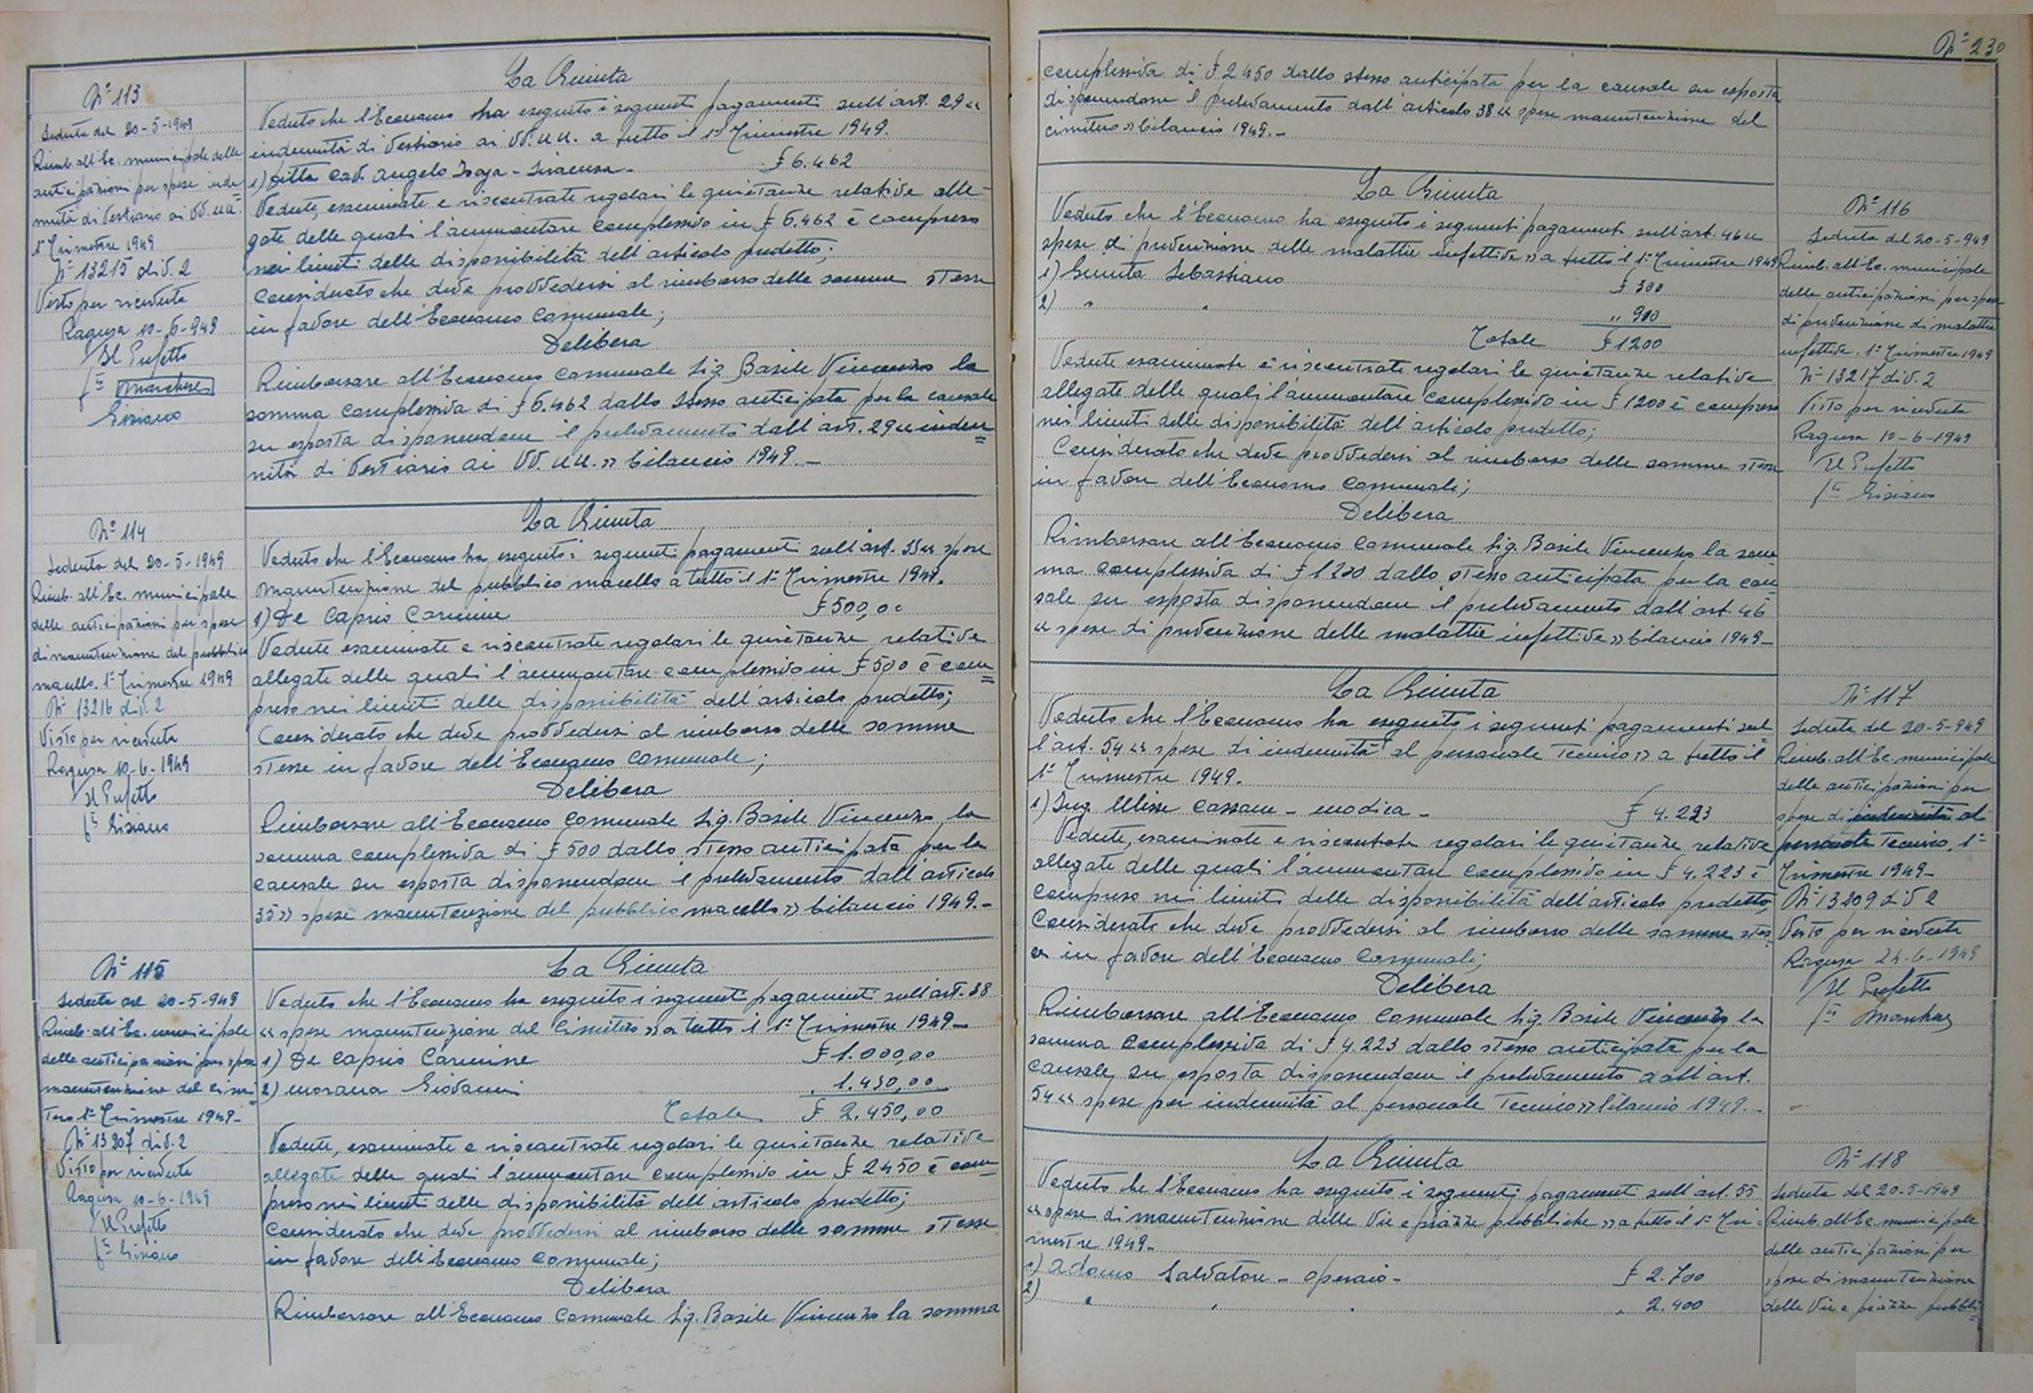 Nº 113
Seduta del 20-5-1949
Rimb. all'Ec. municipale delle
anticipazioni per spese inden
nità di vestiario ai VV.UU.
1º Trimestre 1949
Nº 13215 div. 2
Visto per ricevuta
Ragusa 10-6-949
Il Prefetto
fto
La Giunta
Veduto che l'Economo ha eseguito i seguenti pagamenti sull'art. 29 «
indennità di vestiario ai VV.UU. a tutto il 1º Trimestre 1949.
1) Ditta Cav. Angelo - Siracusa - £ 6.462
Vedute, esaminate e riscontrate regolari le quietanze relative alle=
gate delle quali l'ammontare complessivo in £ 6.462 è compreso
nei limiti delle disponibilità dell'articolo predetto;
Considerato che deve provvedersi al rimborso delle somme stesse
in favore dell'Economo Comunale;
Delibera
Rimborsare all'Economo Comunale Sig. Basile Vincenzo la
somma complessiva di £ 6.462 dallo stesso anticipata per la causale
su esposta disponendone il prelevamento dall'art. 29 « inden=
nità di vestiario ai VV.UU. » bilancio 1949. -
Nº 114
Seduta del 20-5-1949
Rimb. all'Ec. municipale
delle anticipazioni per spese
di manutenzione del pubblico
macello. 1º Trimestre 1949
Nº 13216 div. 2
Visto per ricevuta
Ragusa 10-6-1949
Il Prefetto
fto
La Giunta
Veduto che l'Economo ha eseguito i seguenti pagamenti sull'art. 35 « spese
manutenzione del pubblico macello a tutto il 1º Trimestre 1949.
1) De Caprio Carmine £ 500,00
Vedute esaminate e riscontrate regolari le quietanze relative
allegate delle quali l'ammontare complessivo in £ 500 è com=
preso nei limiti delle disponibilità dell'articolo predetto;
Considerato che deve provvedersi al rimborso delle somme
stesse in favore dell'Economo Comunale;
Delibera
Rimborsare all'Economo Comunale Sig. Basile Vincenzo la
somma complessiva di £ 500 dallo stesso anticipata per la
causale su esposta disponendone il prelevamento dall'articolo
35 » spese manutenzione del pubblico macello » bilancio 1949. -
Nº 115
Seduta del 20-5-949
Rimb. all'Ec. municipale
delle anticipazioni per spese
manutenzione del cimi
tero 1º Trimestre 1949 -
Nº 13207 div. 2
Visto per ricevuta
Ragusa 10-6-1949
Il Prefetto
fto
La Giunta
Veduto che l'Economo ha eseguito i seguenti pagamenti sull'art. 38
« spese manutenzione del Cimitero » a tutto il 1º Trimestre 1949 -
1) De Caprio Carmine £ 1.000,00
2) Morana Giovanni " 1.450,00
Totale £ 2.450,00
Vedute, esaminate e riscontrate regolari le quietanze relative
allegate delle quali l'ammontare complessivo in £ 2450 è com=
preso nei limiti delle disponibilità dell'articolo predetto;
Considerato che deve provvedersi al rimborso delle somme stesse
in favore dell'Economo Comunale;
Delibera
Rimborsare all'Economo Comunale Sig. Basile Vincenzo la somma
Nº 230
complessiva di £ 2450 dallo stesso anticipata per la causale su esposta
disponendone il prelevamento dall'articolo 38 « spese manutenzione del
cimitero » bilancio 1949. -
La Giunta
Veduto che l'Economo ha eseguito i seguenti pagamenti sull'art. 46 «
spese di prevenzione delle malattie infettive » a tutto il 1º Trimestre 1949
1) Giunta Sebastiano £ 300
2) " " " 900
Totale £ 1200
Vedute esaminate e riscontrate regolari le quietanze relative
allegate delle quali l'ammontare complessivo in £ 1200 è compreso
nei limiti delle disponibilità dell'articolo predetto;
Considerato che deve provvedersi al rimborso delle somme stesse
in favore dell'Economo Comunale;
Delibera
Rimborsare all'Economo Comunale Sig. Basile Vincenzo la som=
ma complessiva di £ 1200 dallo stesso anticipata per la cau=
sale su esposta disponendone il prelevamento dall'art. 46
« spese di prevenzione delle malattie infettive » bilancio 1949 -
Nº 116
Seduta del 20-5-949
Rimb. all'Ec. municipale
delle anticipazioni per spese
di prevenzione di malattie
infettive. 1º Trimestre 1949
Nº 13217 div. 2
Visto per ricevuta
Ragusa 10-6-1949
Il Prefetto
fto
La Giunta
Veduto che l'Economo ha eseguito i seguenti pagamenti sul
l'art. 54 « spese di indennità al personale Tecnico » a tutto il
1º Trimestre 1949.
1) Ing. Ulisse Cassone - Modica - £ 4.223
Vedute, esaminate e riscontrate regolari le quietanze relative
allegate delle quali l'ammontare complessivo in £ 4.223 è
compreso nei limiti delle disponibilità dell'articolo predetto;
Considerato che deve provvedersi al rimborso delle somme stes=
se in favore dell'Economo Comunale;
Delibera
Rimborsare all'Economo Comunale Sig. Basile Vincenzo la
somma complessiva di £ 4.223 dallo stesso anticipata per la
causale su esposta disponendone il prelevamento dall'art.
54 « spese per indennità al personale Tecnico » bilancio 1949. -
Nº 117
Seduta del 20-5-949
Rimb. all'Ec. municipale
delle anticipazioni per
spese di indennità al
personale Tecnico. 1º
Trimestre 1949 -
Nº 13209 div 2
Visto per ricevuta
Ragusa 24-6-1949
Il Prefetto
fto
La Giunta
Veduto che l'Economo ha eseguito i seguenti pagamenti sull'art. 55
« spese di manutenzione delle Vie e piazze pubbliche » a tutto il 1º Tri=
mestre 1949 -
1) Adamo Salvatore - operaio - £ 2.700
2) " " " " 2.400
Nº 118
Seduta del 20-5-1949
Rimb. all'Ec. municipale
delle anticipazioni per
spese di manutenzione
delle Vie e piazze pubbli=